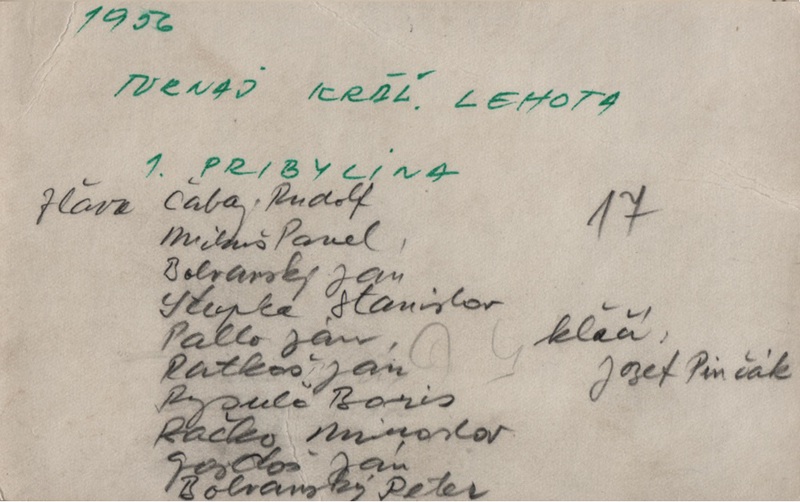 1956
TURNAJ KRÁĽ. LEHOTA
1. PRIBYLINA
zľava Čabaj Rudolf
17
Miluš Pavel,
Bobranský Ján
Stupka Stanislav
Pallo Ján,
kľačí,
Ratkoš Ján
Jozef Pinčák
Boris
Račko Miroslav
Ján
Bobranský Peter